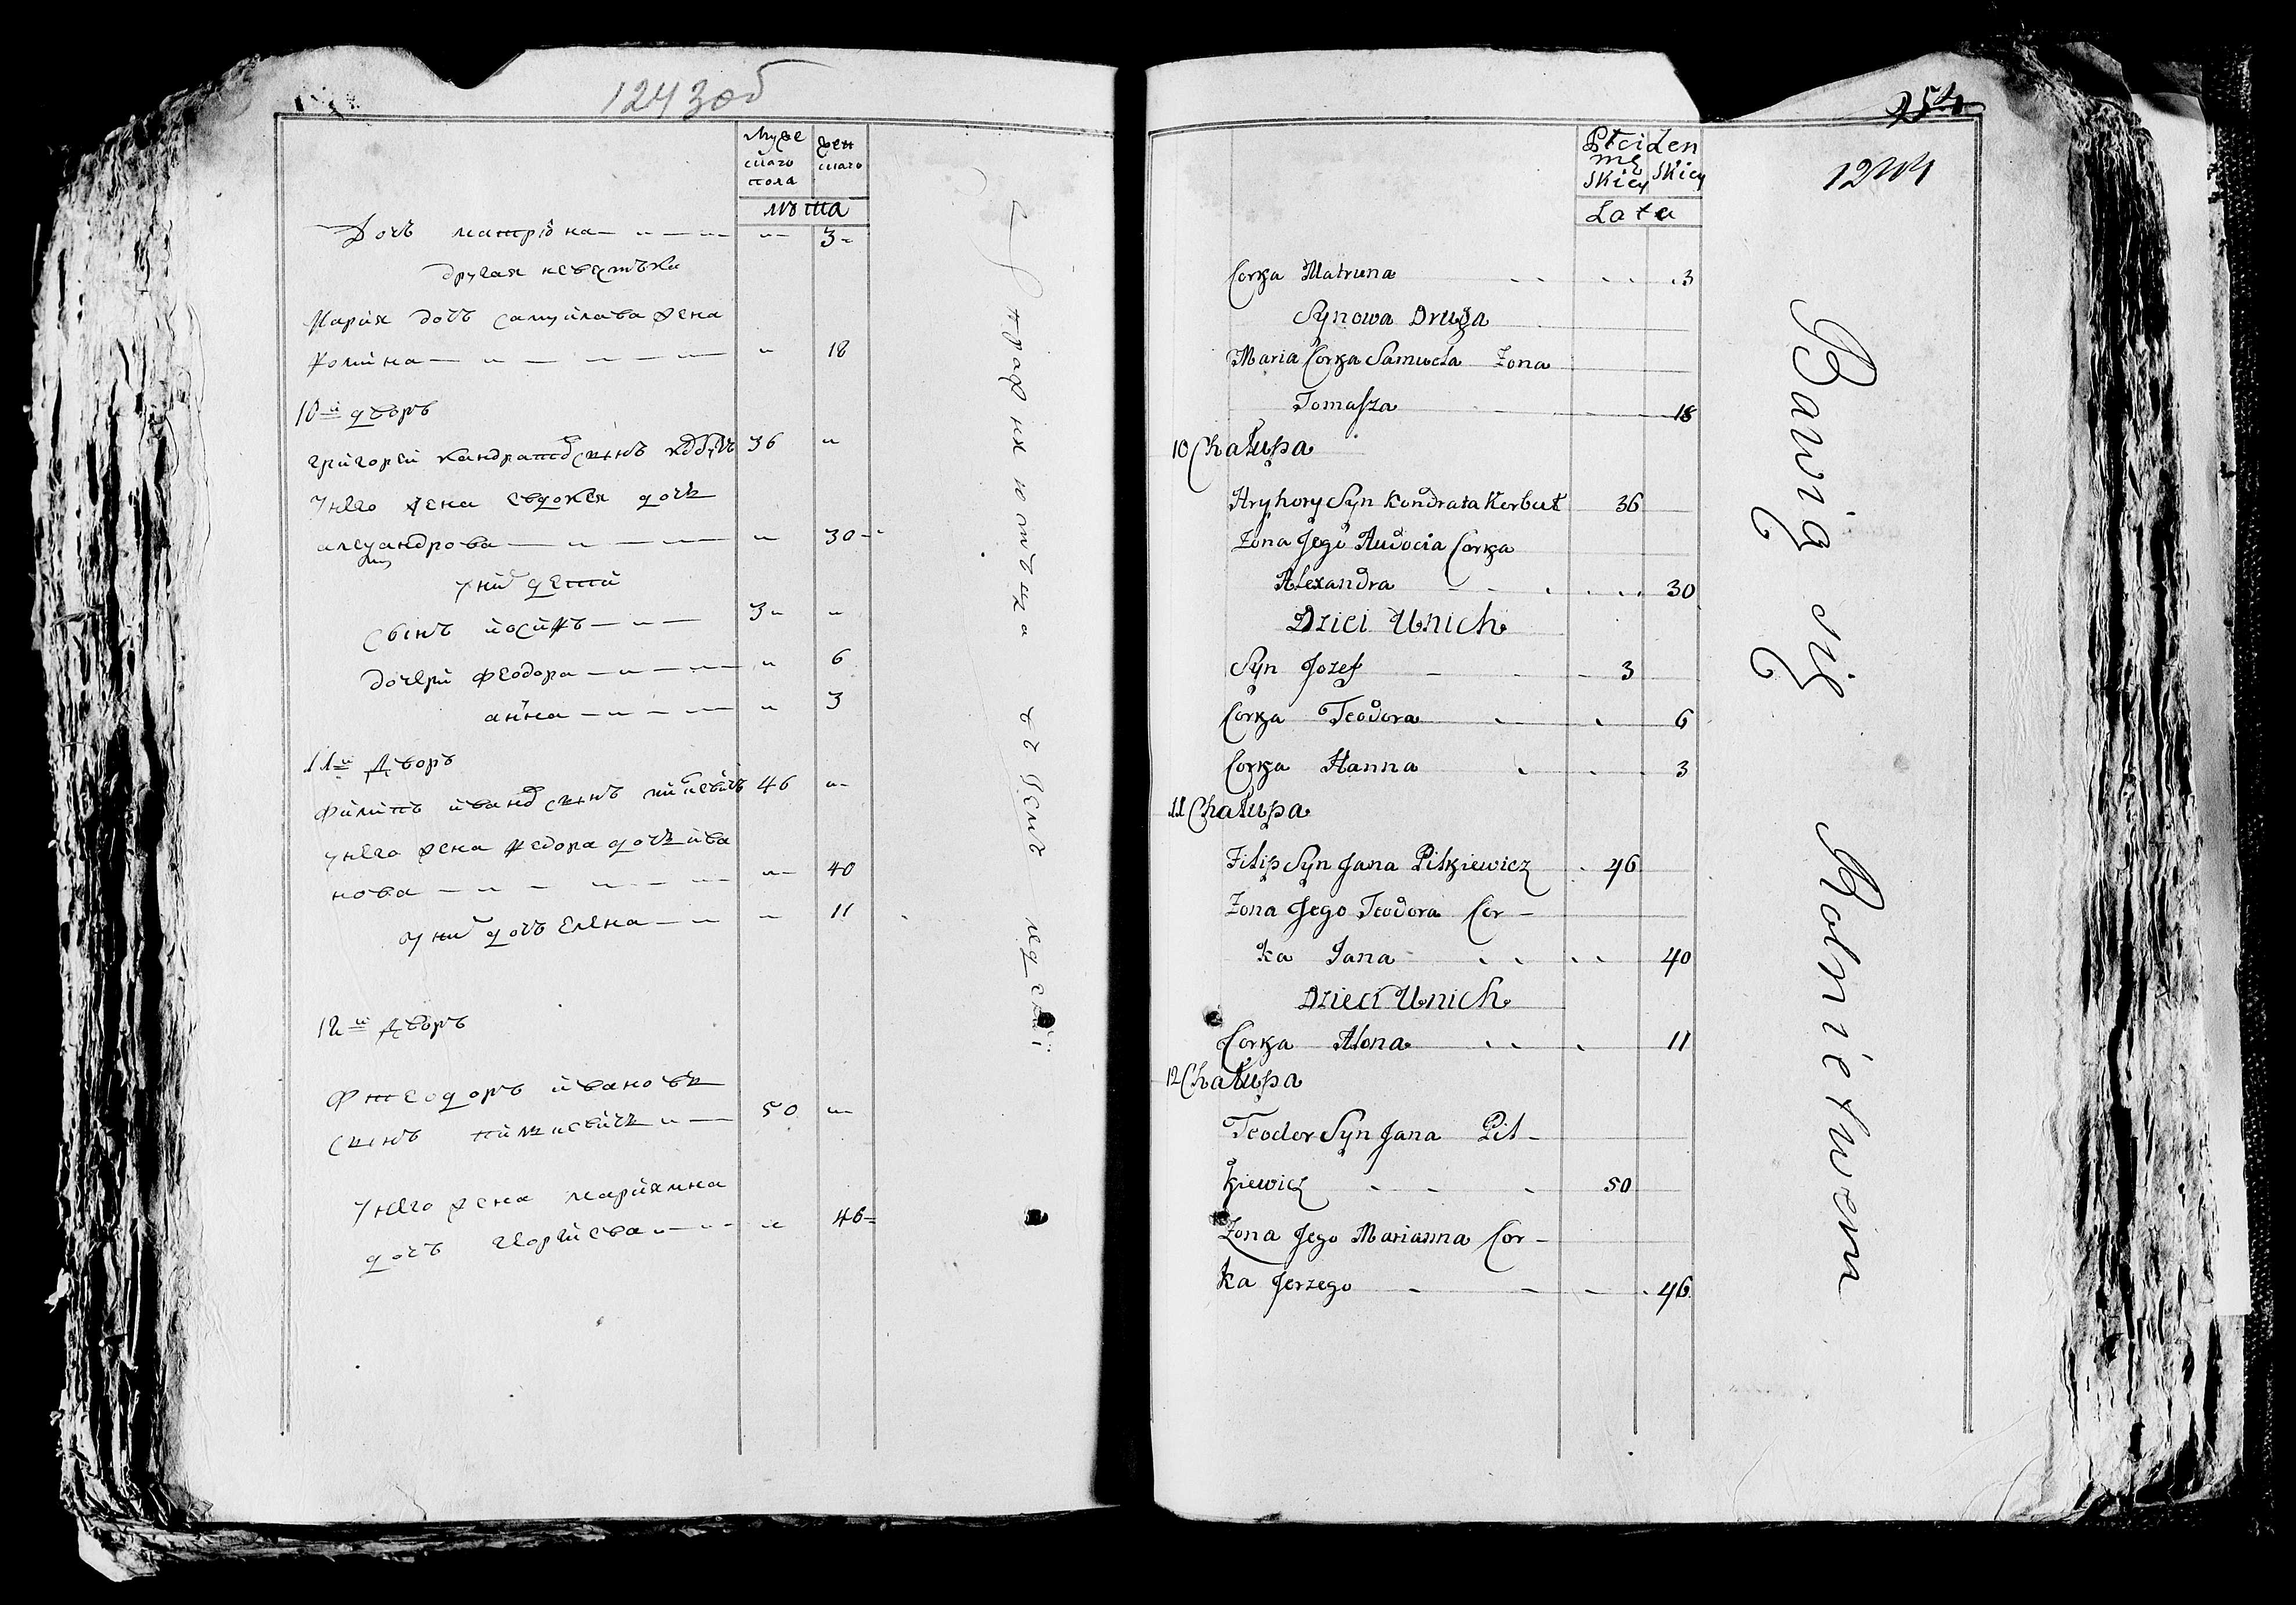 1243 об
Муже
скаго
пола
жен
скаго
лѣта
Дочь матріона 3
другая невѣстька
Марія дочь самуйлава жена
фомина 18
10й дворъ
григорей кандратовъ сынъ 36
У него жена евдокея дочь
александрова 30
у них дети
сынъ иосифъ 3
дочери феодора 6
анна 3
11й дворъ
филипъ иванов сынъ 46
у него жена федора дочь ива
нова 40
у них дочь елена 11
12й дворъ
Фтеодоръ ивановъ
сынъ питкевичъ 50
У него жена марианна
дочь георгиева 46
254
1244
Płci
mę
skiey
Żen
skiey
Lata
Corka Matruna 3
Synowa Druga
Maria Corka Samuela Żona
Tomasza 18
10 Chałupa
Hryhory Syn Kondrata Korbut 36
Żona Jego Audocia Corka
Alexandra 30
Dzieci U nich
Syn Jozef 3
Corka Teodora 6
Corka Hanna 3
11 Chałupa
Filip Syn Jana Pitkiewicz 46
Żona Jego Teodora Cor-
ka Jana 40
Dzieci U nich
Corka Alona 11
12 Chałupa
Teodor Syn Jana Pit-
kiewicz 50
Żona Jego Marianna Cor-
ka Jerzego 46
Bawią się Rolnictwem